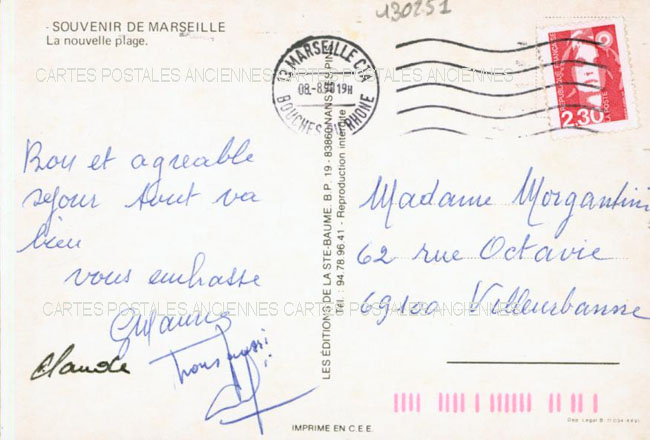 430251
SOUVENIR DE MARSEILLE
La nouvelle plage.
13 MARSEILLE CTA
08.-8.90 19H
BOUCHES DU RHONE
REPUBLIQUE FRANÇAISE
2,30
LA POSTE
CARTES POSTALES ANCIENNES CARTES POSTALES ANCIENNES
Bon et agreable
sejour tout va
bien
vous embrasse
Claude
LES ÉDITIONS DE LA STE-BAUME. B.P. 19 - 83860 NANS LES PINS
Tél. : 94 78 96 41 - Reproduction interdite
Madame Morgantini
62 rue Octavie
69100 Villeurbanne
CARTES POSTALES ANCIENNES CARTES POSTALES ANCIENNES
IMPRIMÉ EN C.E.E.